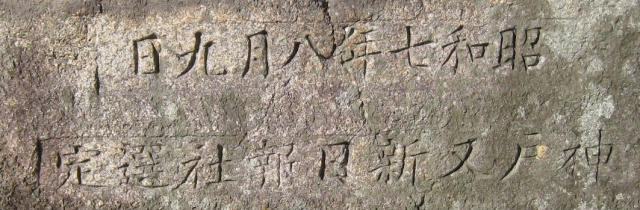 昭和七年八月九日
神戸又新日報社選定